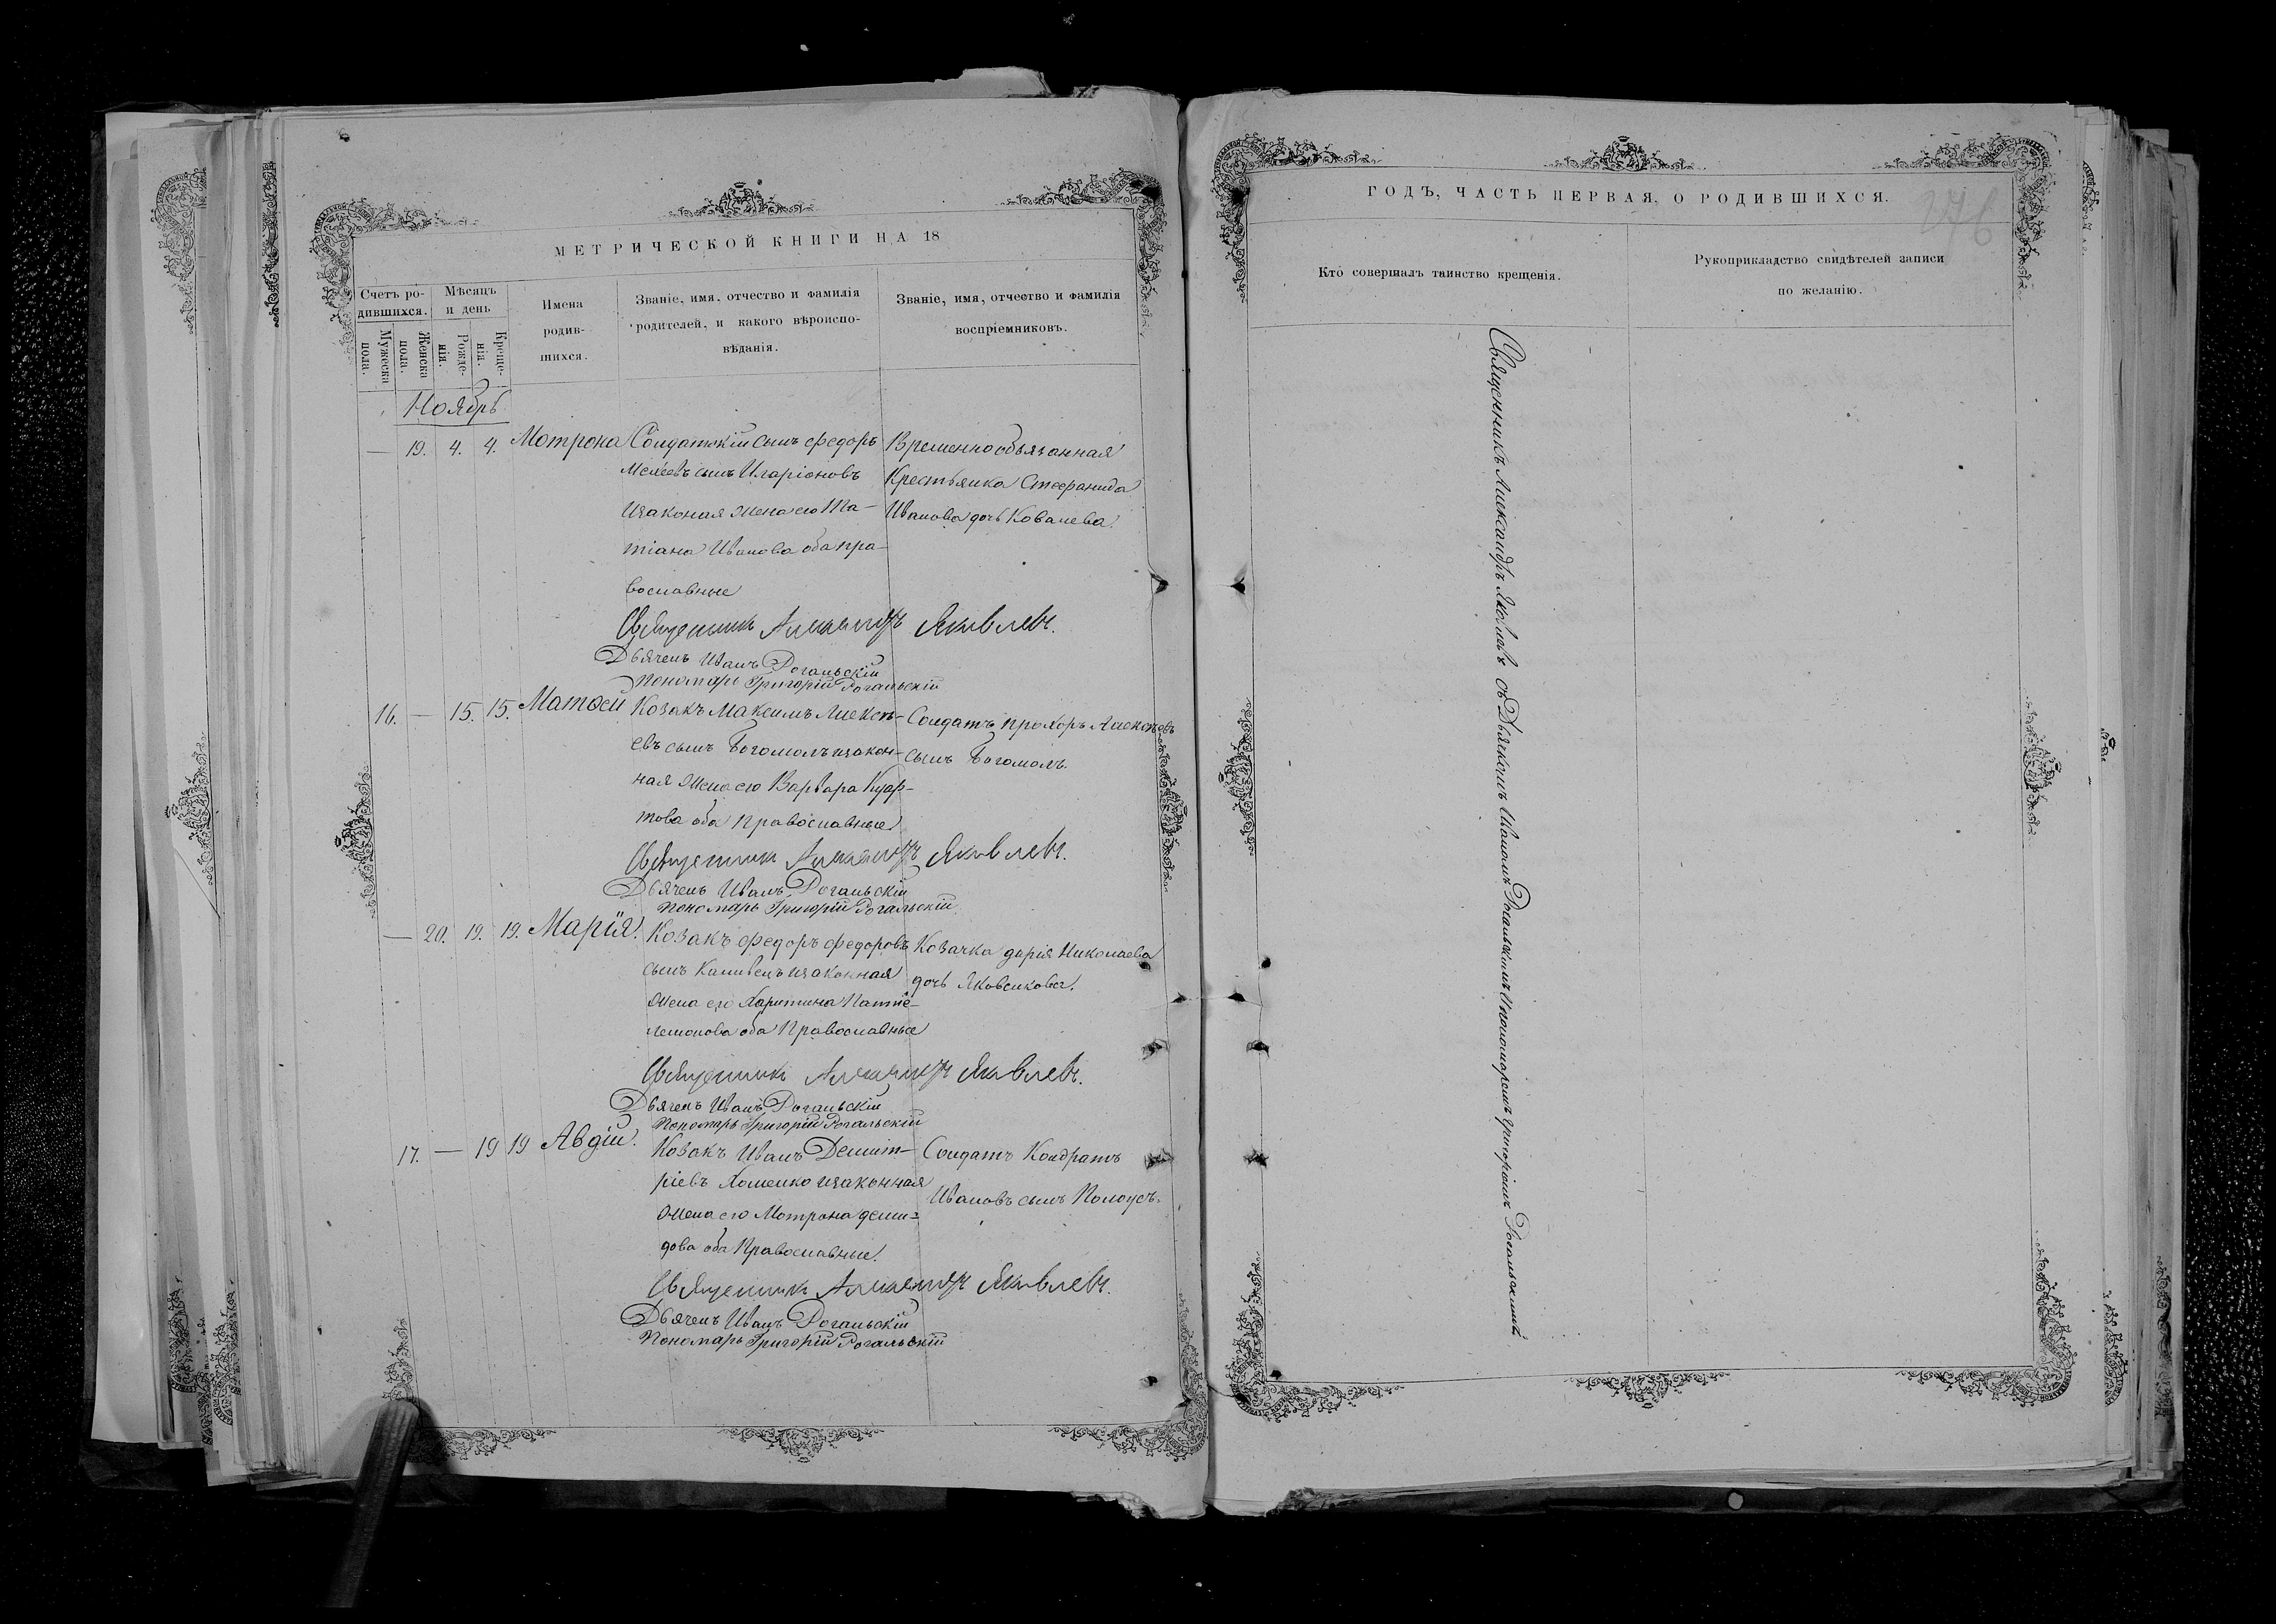 МЕТРИЧЕСКОЙ КНИГИ НА 18
Счетъ ро-
дившихся.
Мѣсяцъ
и день
Мужеска
пола.
Женска
пола.
Рожде-
нія.
Креще-
нія.
Имена
родив-
шихся.
Званіе, имя, отчество и фамилія
родителей, и какого вѣроиспо-
вѣданія.
Званіе, имя, отчество и фамилія
воспріемниковъ.
Ноябрь
— 19. 4. 4. Мотрона
Солдатскій сынъ Федоръ
сынъ Иларіоновъ
изаконая жена его Та-
тіана Иванова оба пра-
вославные
Временнообязанная
Крестьянка Стефанида
Иванова дочь Ковалева.
Священникъ Александръ Яковлевъ.
Дьячекъ Иванъ Рогальскій
Пономарь Григорій Рогальскій
16. — 15. 15. Матѳей
Козакъ Максимъ Алексѣ-
евъ сынъ Богомолъ изакон-
ная жена его Варвара
това оба православные
Солдатъ Прохоръ Алексѣевъ
сынъ Богомолъ
Священникъ Александръ Яковлевъ.
Дьячекъ Иванъ Рогальскій
Пономарь Григорій Рогальскій
— 20. 19. 19. Марія.
Козакъ Федоръ Федоровъ
сынъ изаконная
жена его Харитина Панте-
лемонова оба Православные
Козачка Дарія Николаева
дочь Яковенкова.
Священникъ Александръ Яковлевъ.
Дьячекъ Иванъ Рогальскій
Пономарь Григорій Рогальскій
17. — 19 19 Авдій.
Козакъ Иванъ Демит-
ріевъ Хоменко изаконная
жена его Мотрона Деми-
дова оба Православные.
Солдатъ Кондратъ
Ивановъ сынъ
Священникъ Александръ Яковлевъ.
Дьячекъ Иванъ Рогальскій
Пономарь Григорій Рогальскій
ГОДЪ, ЧАСТЬ ПЕРВАЯ, О РОДИВШИХСЯ.
276
Кто совершалъ таинство крещенія.
Рукоприкладство свидѣтелей записи
по желанію.
Священникъ Александръ Яковлевъ съ Дьячкомъ Иваномъ Рогальскимъ Ипономаремъ Григоріемъ Рогальскимъ